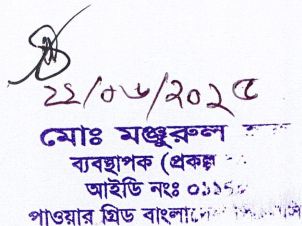 ২২/০৬/২০২৫
মোঃ মঞ্জুরুল
ব্যবস্থাপক (প্রকল্প
আইডি নংঃ ০১১
পাওয়ার গ্রিড